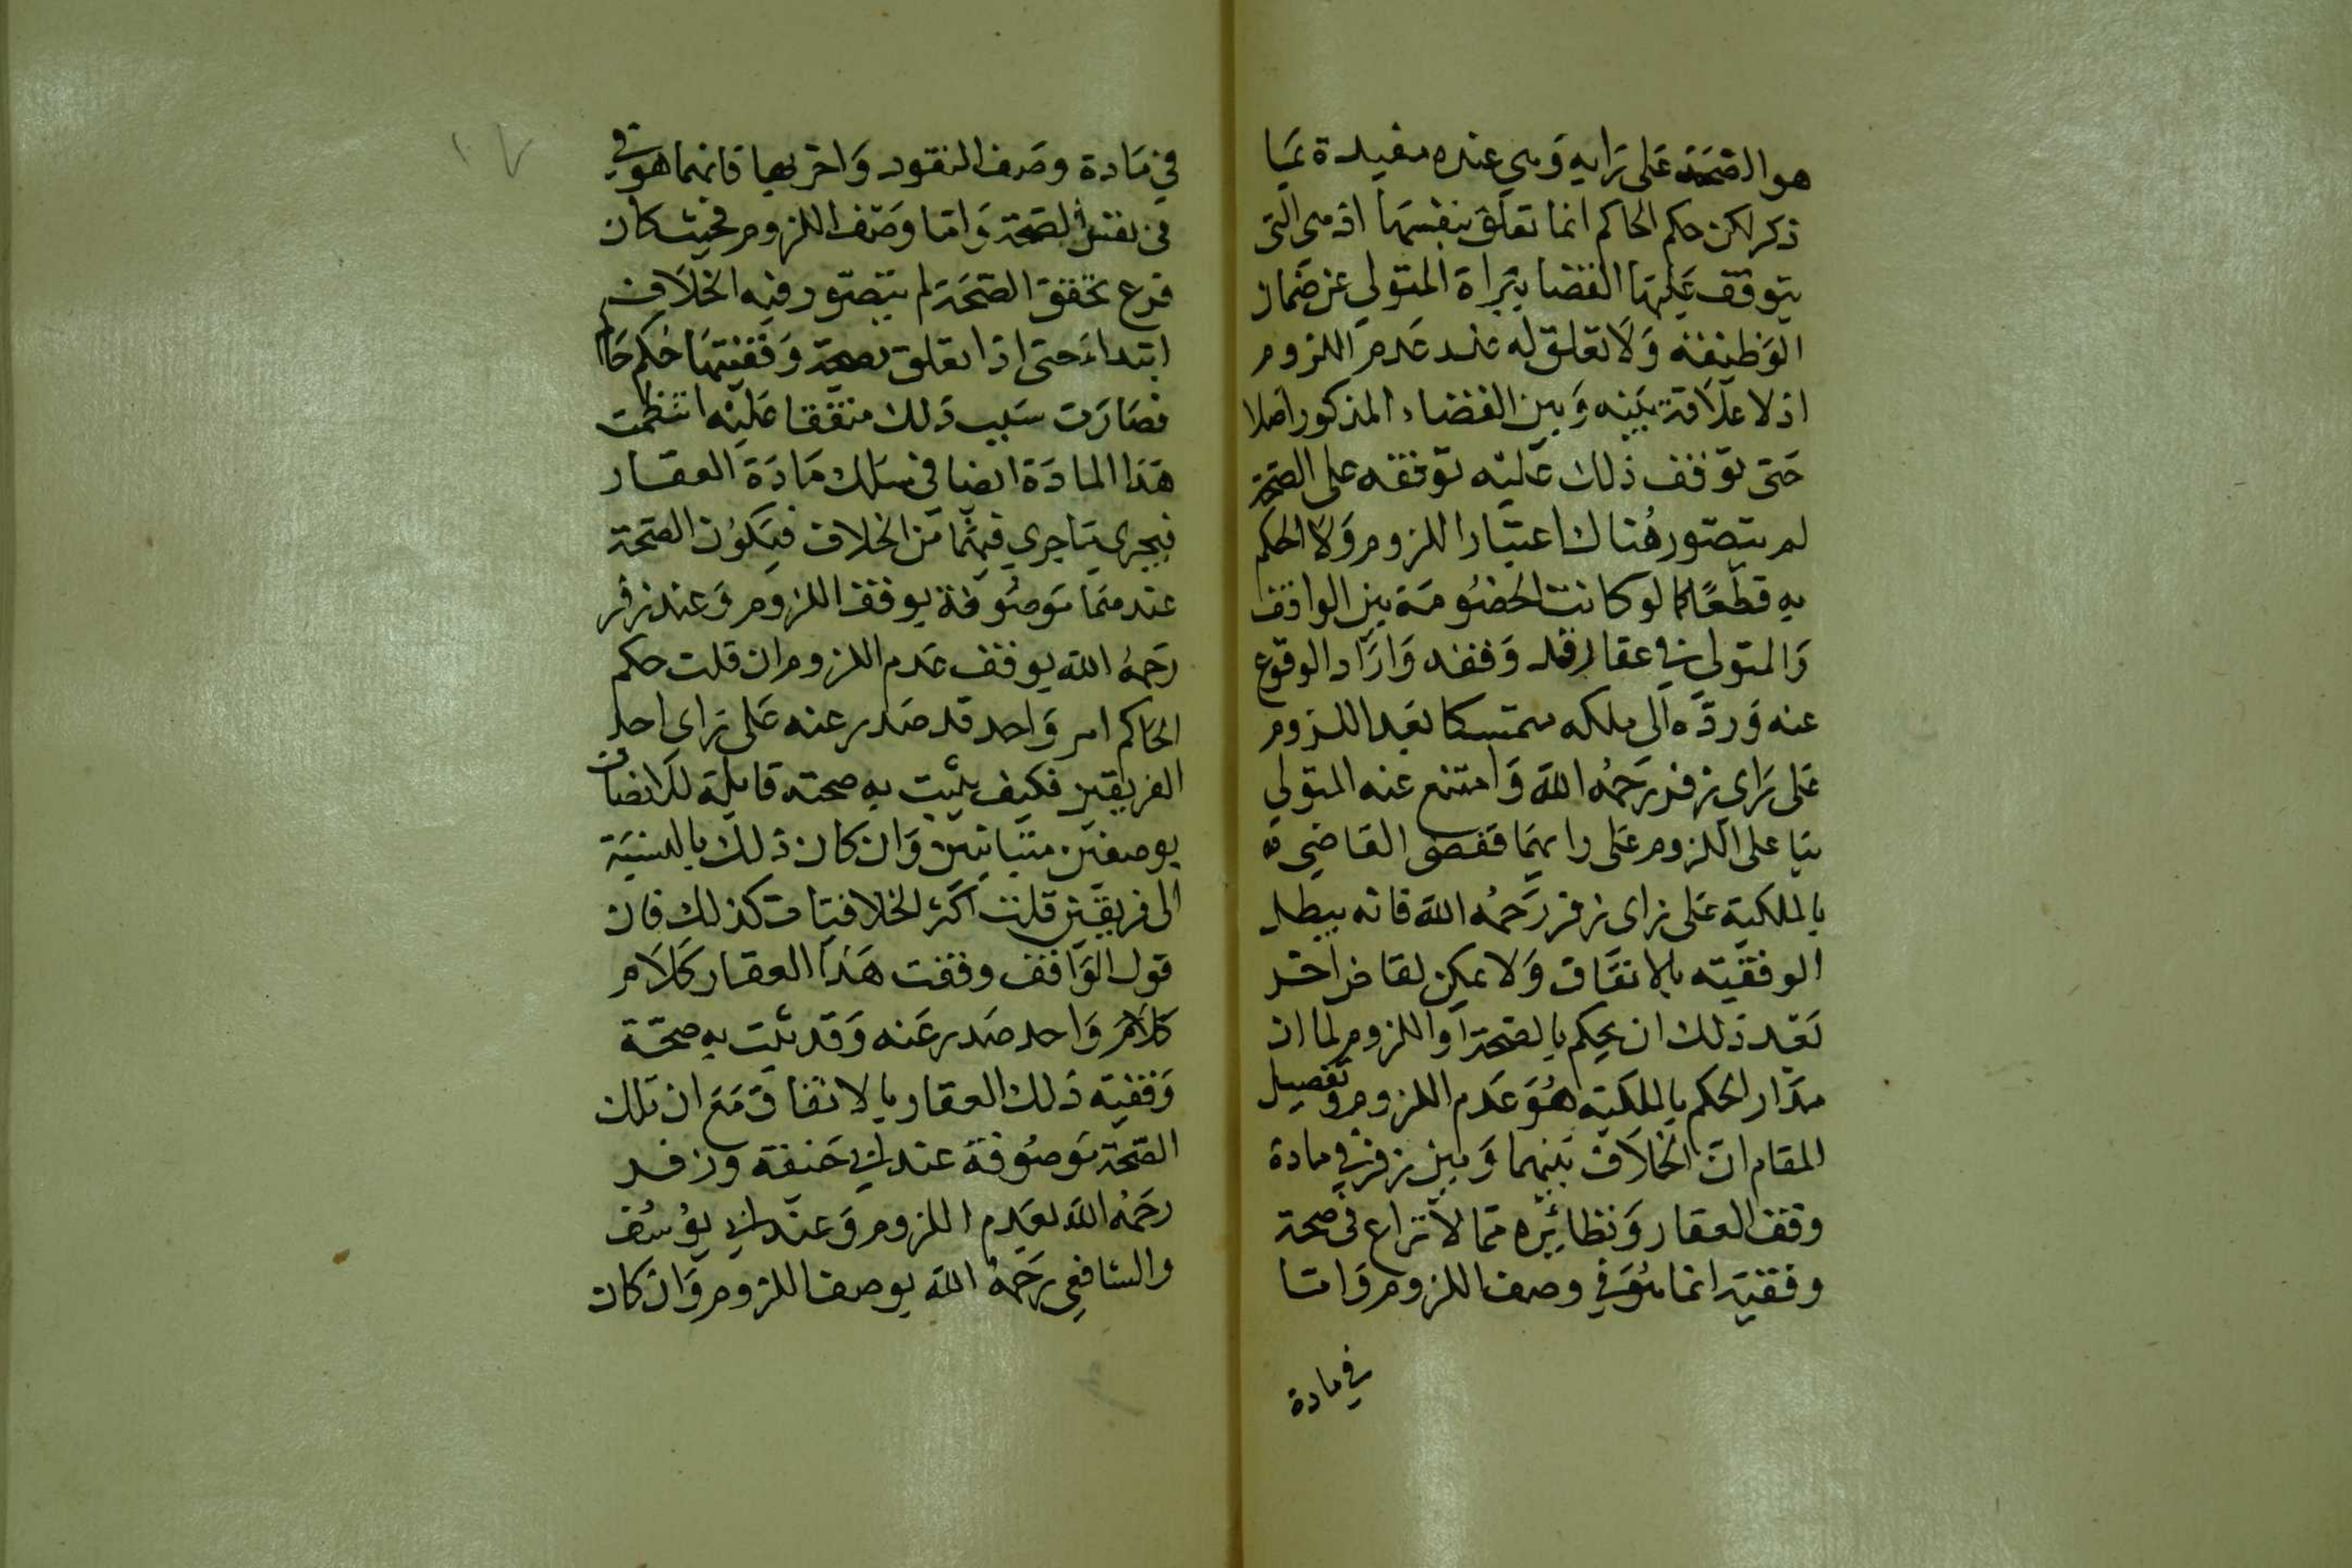 هو الصحة على رايه وهي عنده مقيدة بما
ذكر لكن حكم الحاكم انما تعلق بنفسها اذ هي التي
يتوقف عليها القضا ببراة المتولي عن ضمان
الوظيفة ولا تعلق له عند عدم اللزوم
اذ لا علاقة بينه وبين القضاء المذكور اصلا
حتى توقف ذلك عليه توقفه على الصحة
لم يتصور هناك اعتبار اللزوم ولا الحكم
به قطعا كما لو كانت الخصومة بين الواقف
والمتولي في عقار قد وقفه واراد الوقوع
عنه ورده الى ملكه متمسكا بعد اللزوم
على راي زفر رحمه الله وامتنع عنه المتولي
بنا على اللزوم على رايهما فقضى القاضي
بالملكية على راى زفر رحمه الله فانه يبطل
الوقفية بالاتفاق ولا يمكن لقاض اخر
بعد ذلك ان يحكم بالصحة او اللزوم لما ان
مدار الحكم بالملكية هو عدم اللزوم وتفصيل
المقام ان الخلاف بينهما وبين زفر في مادة
وقف العقار ونظائره مما لا نزاع في صحة
وقفية انما هو في وصف اللزوم واما
في مادة
في مادة وصف النقود واخريها فانما هو في
في نفس الصحة واما وصف اللزوم فحيث كان
فرع تحقق الصحة لم يتصور فيه الخلاف
ابتداء حتى اذا تعلق بصحة وقفيتها حكم حاكم
فصارت سبب ذلك متفقا عليه انتظمت
هذا المادة ايضا في سلك مادة العقار
فيجري ما جري فيها من الخلاف فيكون الصحة
عندهما موصوفة بوقف اللزوم وعند زفر
رحمه الله بوقف عدم اللزوم ان قلت حكم
الحاكم امر واحد قد صدر عنه على راى احد
الفريقين فكيف يثبت به صحته قابلة للاتصاف
بوصفين متباينين وان كان ذلك بالنسبة
الى فريقين قلت اكثر الخلافيات كذلك فان
قول الواقف وقفت هذا العقار كلام
كلام واحد صدر عنه وقد ثبت به صحة
وقفية ذلك العقار بالاتفاق مع ان تلك
الصحة موصوفة عند ابي حنفة وزفر
رحمه الله بعدم اللزوم وعند ابي يوسف
والشافعي رحمه الله بوصف اللزوم وان كان